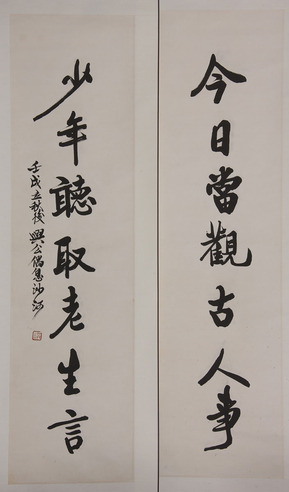 今日當觀古人事
少年聽取老生言
壬戌立秋後興公偶寫沙河